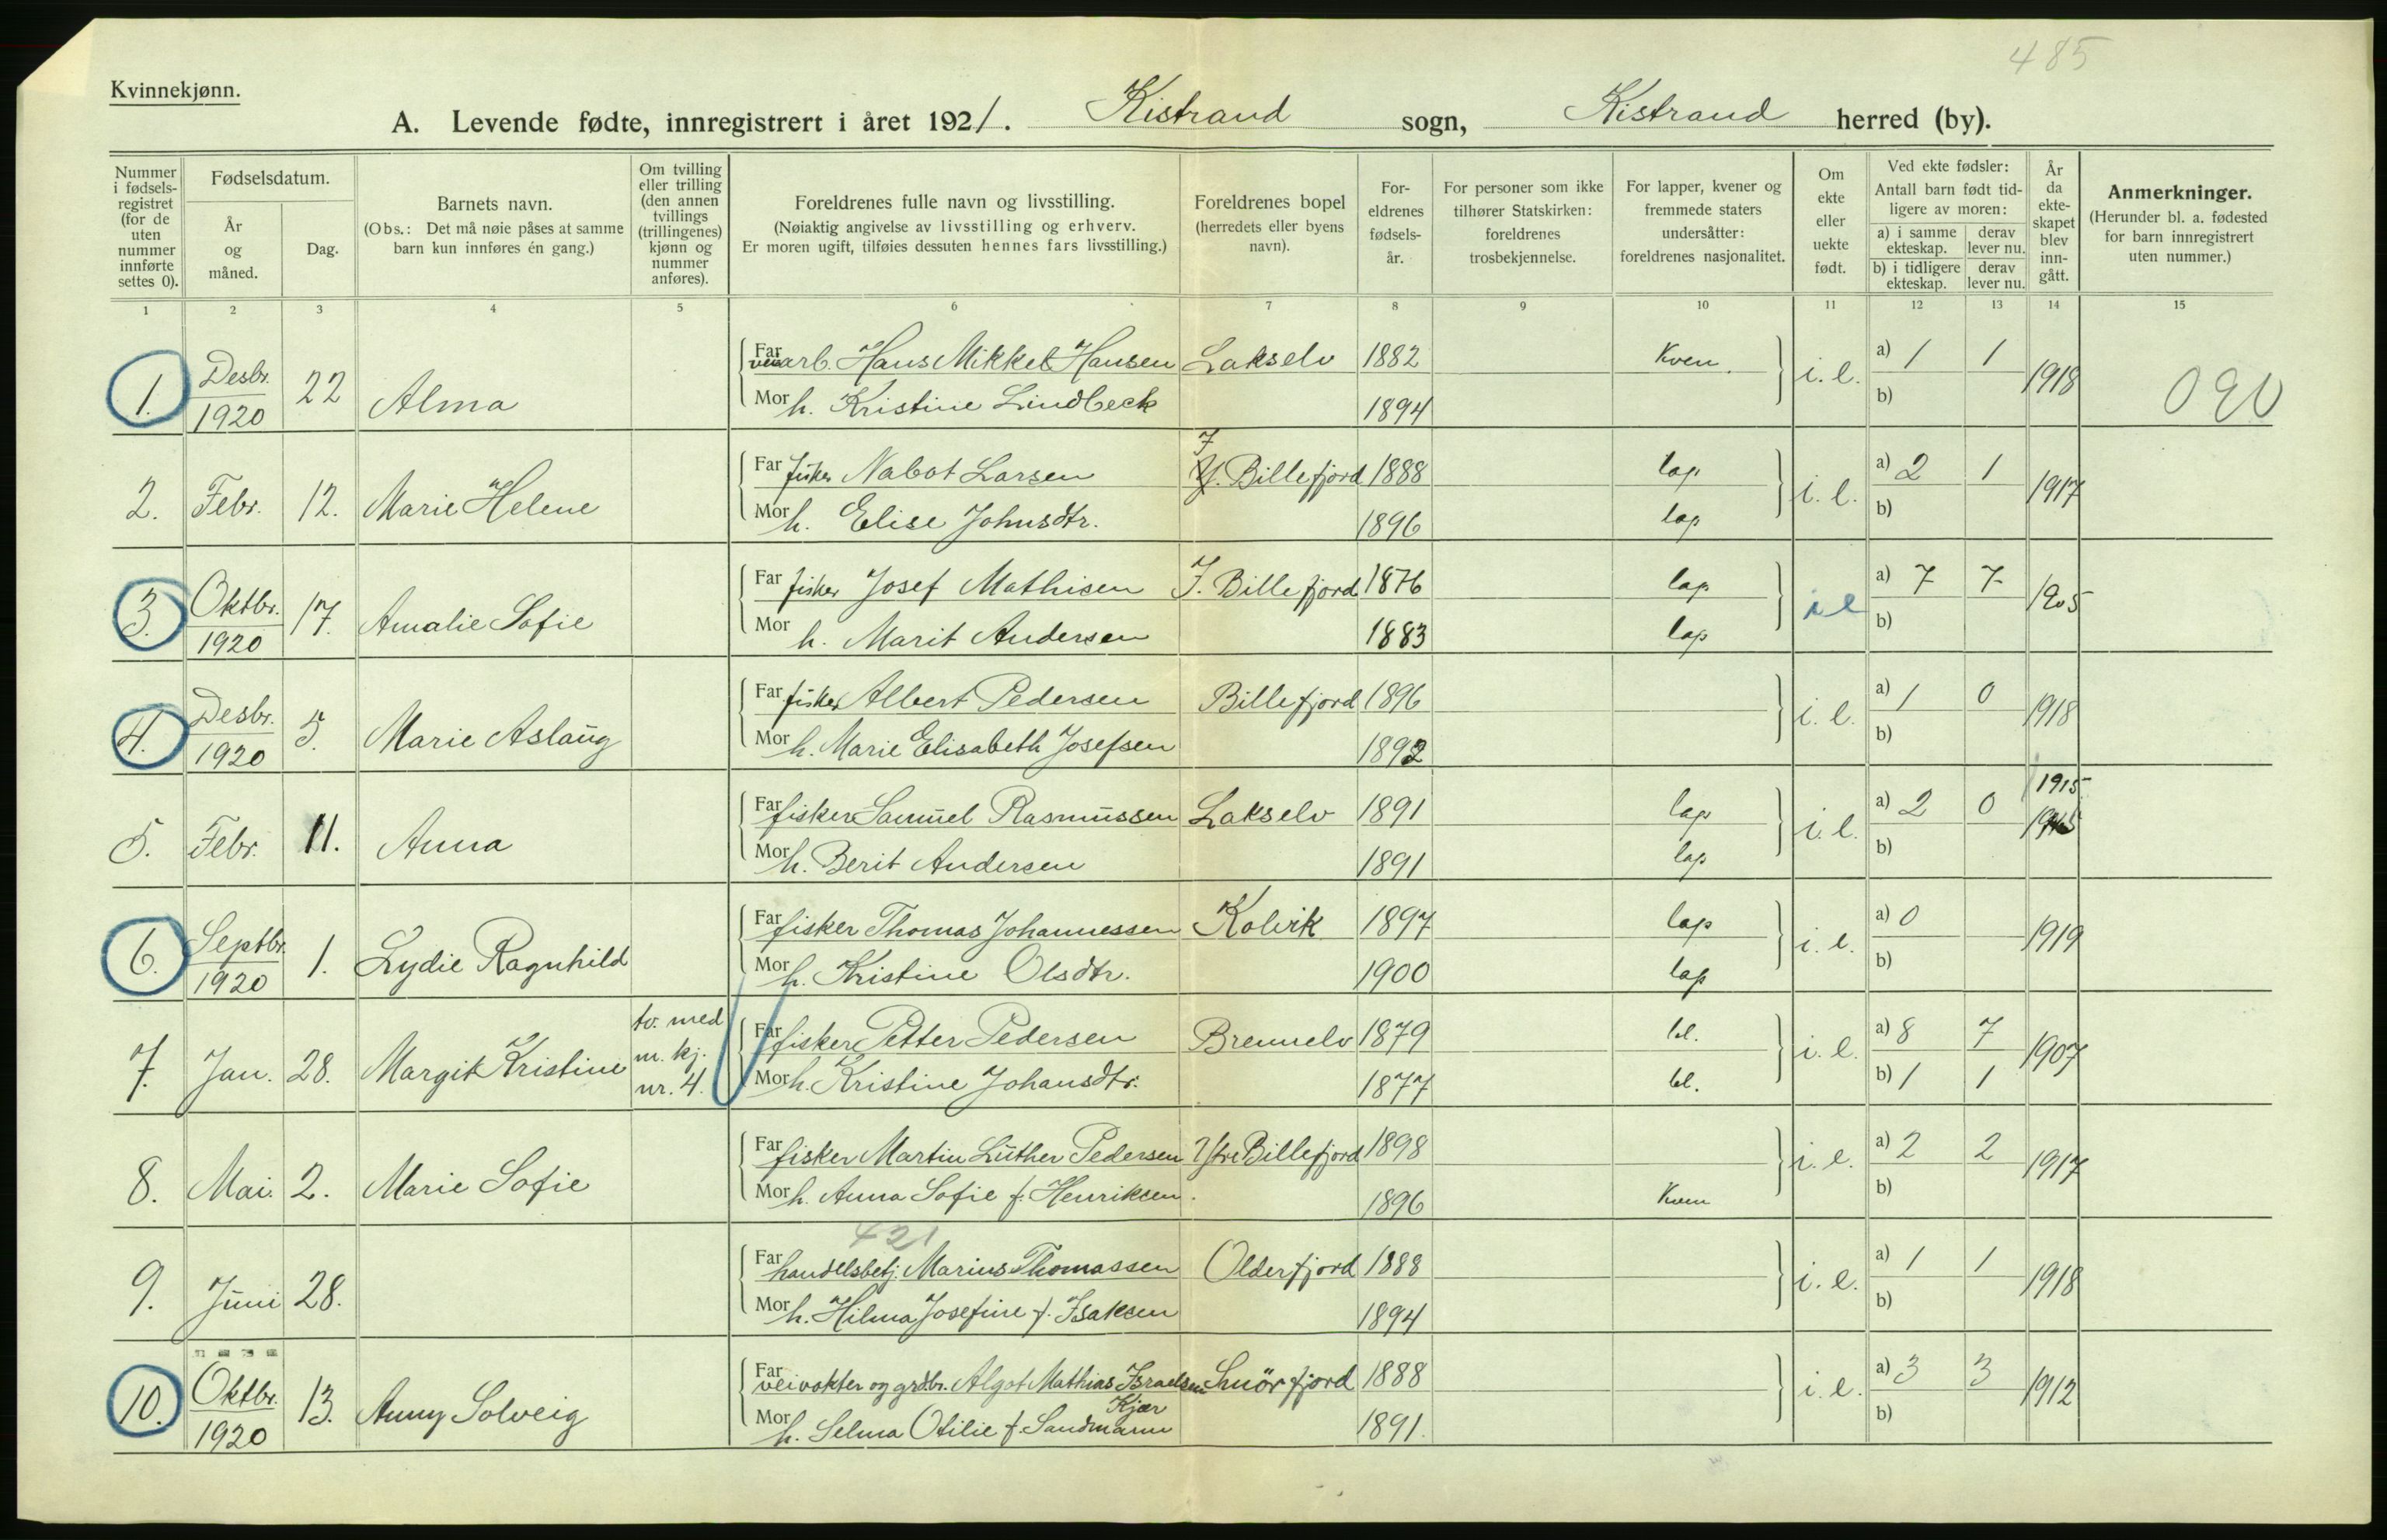 485
Kvinnekjønn.
A. Levende fødte, innregistrert i året 1921. Kistrand sogn, Kistrand herred (by).
Nummer i fødsels-registret (for de uten nummer innførte settes 0).
Fødselsdatum.
År og måned.
Dag.
Barnets navn.
(Obs.: Det må nøie påses at samme barn kun innføres én gang.)
Om tvilling eller trilling (den annen tvillings (trillingenes) kjønn og nummer anføres).
Foreldrenes fulle navn og livsstilling.
(Nøiaktig angivelse av livsstilling og erhverv.
Er moren ugift, tilføies dessuten hennes fars livsstilling.)
Foreldrenes bopel
(herredets eller byens navn).
For-eldrenes fødsels-år.
For personer som ikke tilhører Statskirken: foreldrenes trosbekjennelse.
For lapper, kvener og fremmede staters undersåtter: foreldrenes nasjonalitet.
Om ekte eller uekte født.
Ved ekte fødsler:
Antall barn født tid-ligere av moren:
a) i samme ekteskap.
derav lever nu.
b) i tidligere ekteskap.
derav lever nu.
År da ekte-skapet blev inn-gått.
Anmerkninger.
(Herunder bl. a. fødested for barn innregistrert uten nummer.)
1 2 3 4 5 6 7 8 9 10 11 12 13 14 15
1. Desbr. 1920 22 Alma
Far veiarb. Hans Mikkel Hansen Lakselv 1882 Kven. i. e. a) 1 1 1918 090
Mor h. Kristine Lindbeck 1894 b)
2. Febr. 12. Marie Helene
Far fisker Nabot Larsen Y. Billefjord 1888 lap i. e. a) 2 1 1917
Mor h. Elise Johnsdtr. 1896 lap b)
3. Oktbr. 1920 17. Amalie Sofie
Far fisker Josef Mathisen I. Billefjord 1876 lap i e a) 7 7 1905
Mor h. Marit Andersen 1883 lap b)
4. Desbr. 1920 5. Marie Aslaug
Far fisker Albert Pedersen Billefjord 1896 i. e. a) 1 0 1918
Mor h. Marie Elisabeth Josefsen 1892 b)
5. Febr. 11. Anna
Far fisker Samuel Rasmussen Lakselv 1891 lap i. e. a) 2 0 1915
Mor h. Berit Andersen 1891 lap b)
6. Septbr. 1920 1. Lydie Ragnhild
Far fisker Thomas Johannessen Kolvik 1897 lap i. e. a) 0 1919
Mor h. Kristine Olsdtr. 1900 lap b)
7. Jan. 28. Margit Kristine tv. med m. kj. nr. 4.
Far fisker Petter Pedersen Brennelv 1879 bl. i. e. a) 8 7 1907
Mor h. Kristine Johansdtr. 1877 bl. b) 1 1
8. Mai. 2. Marie Sofie
Far fisker Martin Luther Pedersen Ystre Billefjord 1898 i. e. a) 2 2 1917
Mor h. Anna Sofie f. Henriksen. 1896 Kven b)
421
9. Juni 28.
Far handelsbetj. Marius Thomassen Olderfjord 1888 i. e. a) 1 1 1918
Mor h. Hilma Josefine f. Isaksen 1894 b)
10. Oktbr. 1920 13. Anny Solveig
Far veivokter og grdbr. Algot Mathias Israelsen Smörfjord 1888 i. e. a) 3 3 1912
Kjær
Mor h. Selma Otilie f. Sandmann 1891. b)